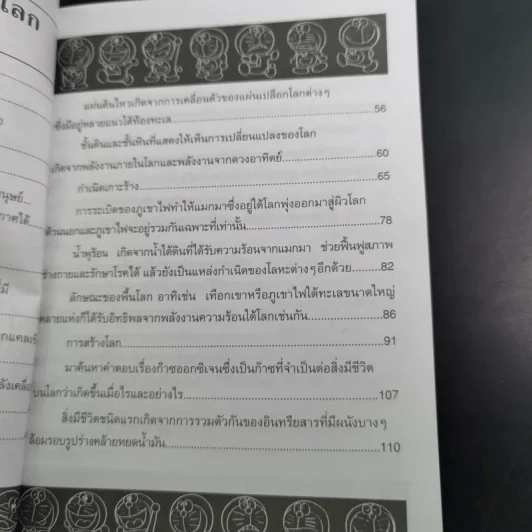 ลก
นุษย์...
าคได้
มี
แผ่นดินไหวเกิดจากการเคลื่อนตัวของแผ่นเปลือกโลกต่างๆ
ซึ่งมีอยู่หลายแนวใต้ท้องทะเล...56
ชั้นดินและชั้นหินที่แสดงให้เห็นการเปลี่ยนแปลงของโลก
เกิดจากพลังงานภายในโลกและพลังงานจากดวงอาทิตย์...60
กำเนิดเกาะร้าง...65
การระเบิดของภูเขาไฟทำให้แมกมาซึ่งอยู่ใต้โลกพุ่งออกมาสู่ผิวโลก
ด้านนอกและภูเขาไฟจะอยู่รวมกันเฉพาะที่เท่านั้น...78
น้ำพุร้อน เกิดจากน้ำใต้ดินที่ได้รับความร้อนจากแมกมา ช่วยฟื้นฟูสภาพ
ร่างกายและรักษาโรคได้ แล้วยังเป็นแหล่งกำเนิดของโลหะต่างๆอีกด้วย...82
ลักษณะของพื้นโลก อาทิเช่น เทือกเขาหรือภูเขาไฟใต้ทะเลขนาดใหญ่
หลายแห่งก็ได้รับอิทธิพลจากพลังงานความร้อนใต้โลกเช่นกัน...86
การสร้างโลก...91
มาค้นหาคำตอบเรื่องก๊าซออกซิเจนซึ่งเป็นก๊าซที่จำเป็นต่อสิ่งมีชีวิต
บนโลกว่าเกิดขึ้นเมื่อไรและอย่างไร...107
สิ่งมีชีวิตชนิดแรกเกิดจากการรวมตัวกันของอินทรียสารที่มีผนังบางๆ
ล้อมรอบรูปร่างคล้ายหยดน้ำมัน...110